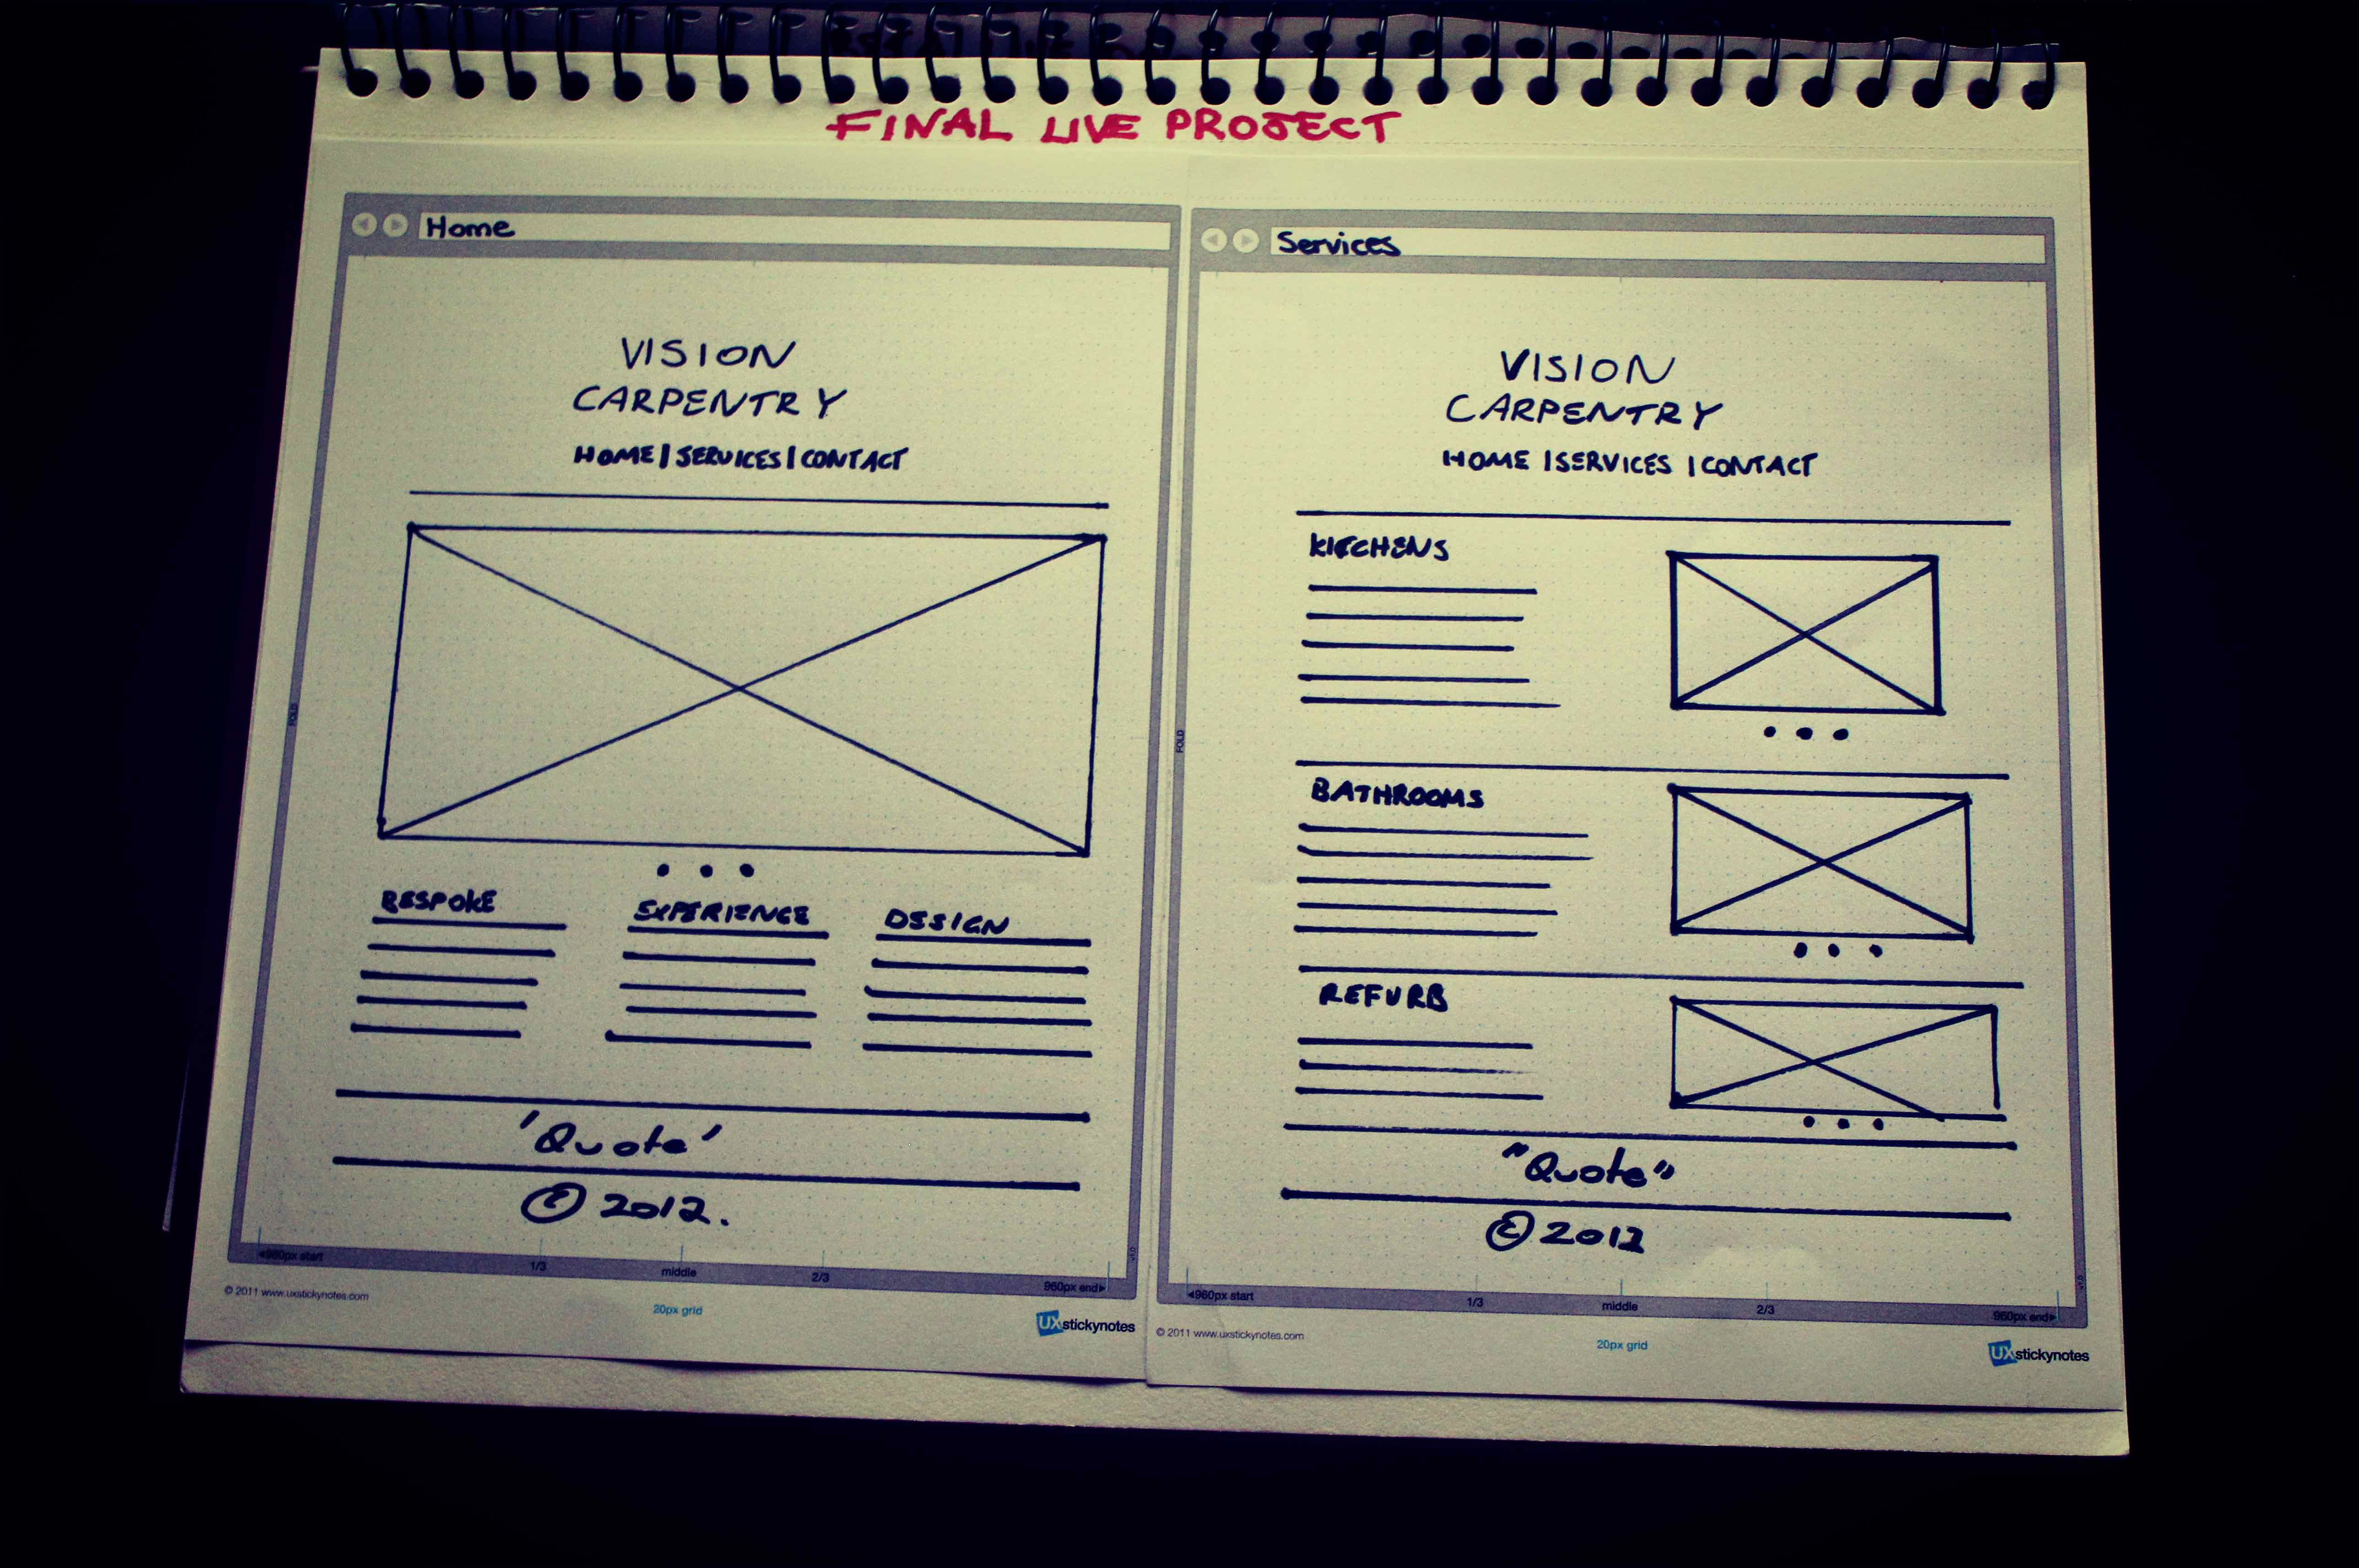 FINAL LIVE PROJECT
Home
VISION
CARPENTRY
HOME | SERVICES | CONTACT
BESPOKE
EXPERIENCE
DESIGN
'Quote'
© 2012.
FOLD
◀960px start
1/3
middle
2/3
960px end▶
v1.0
© 2011 www.uxstickynotes.com
20px grid
UXstickynotes
Services
VISION
CARPENTRY
HOME | SERVICES | CONTACT
KITCHENS
BATHROOMS
REFURB
"Quote"
© 2012
FOLD
◀960px start
1/3
middle
2/3
960px end▶
v1.0
© 2011 www.uxstickynotes.com
20px grid
UXstickynotes